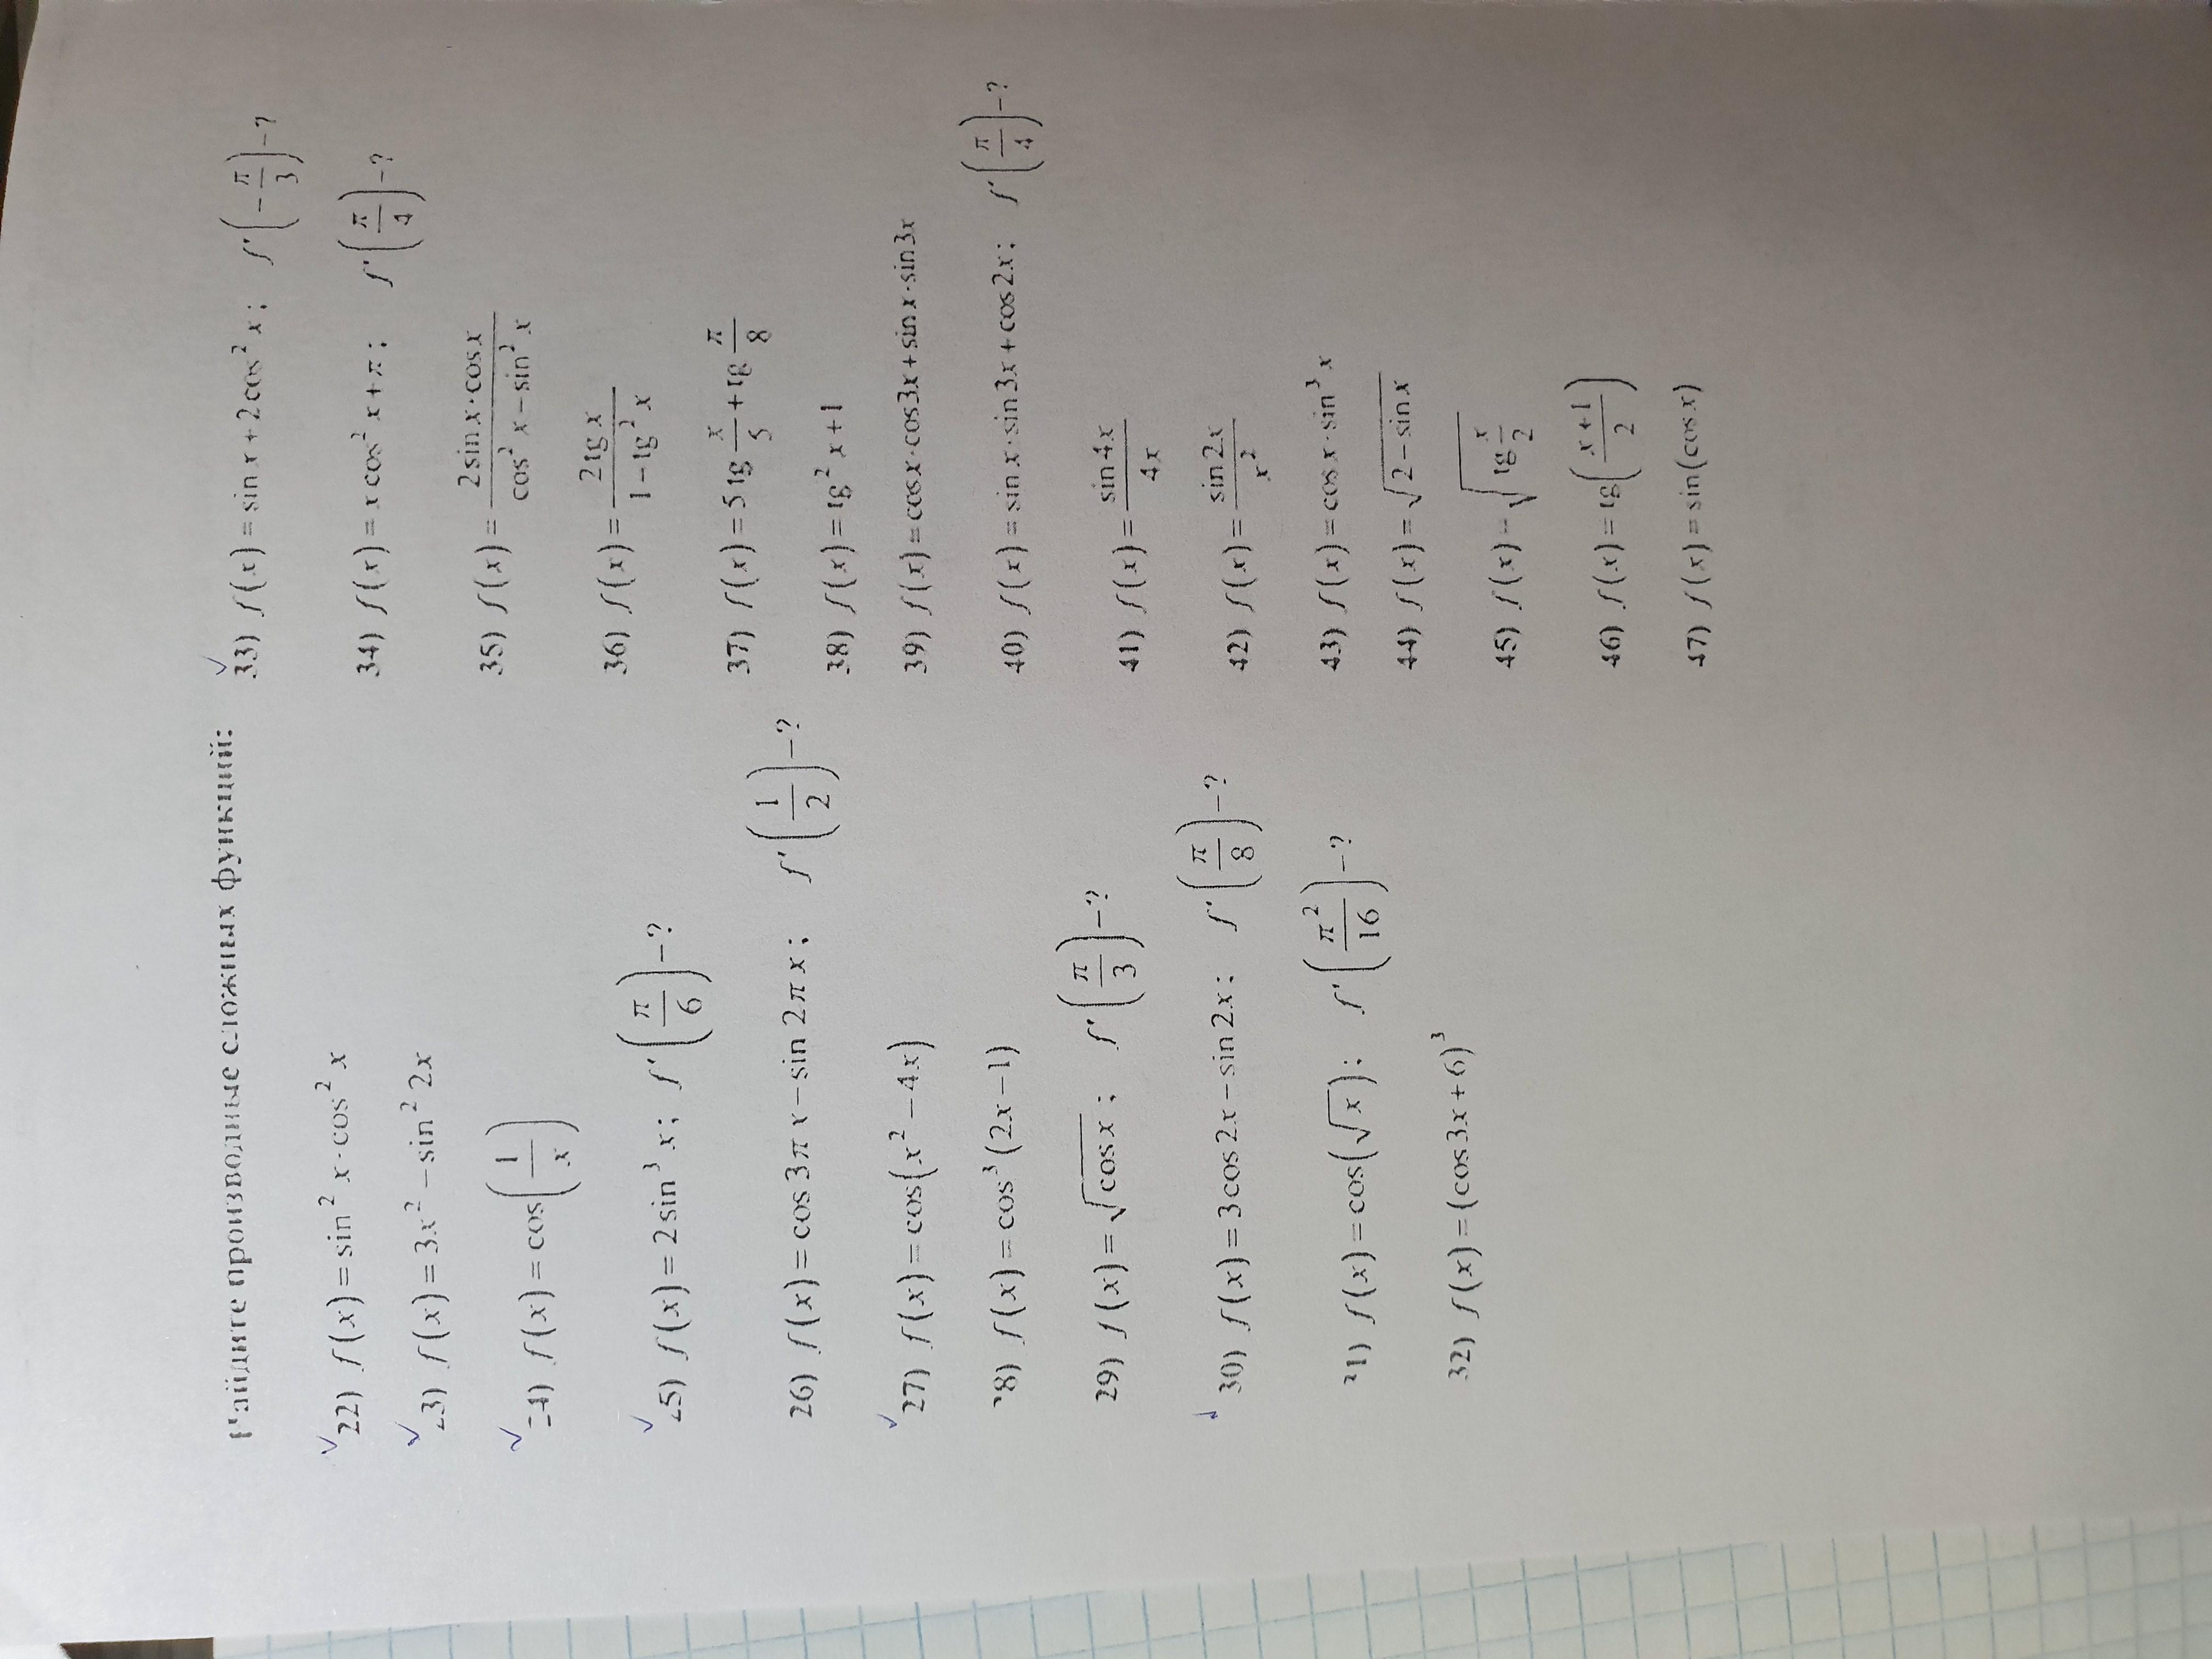 Найдите производные сложных функций:
22) f(x) = sin² x · cos² x
23) f(x) = 3x² − sin² 2x
24) f(x) = cos(1/x)
25) f(x) = 2 sin³ x; f′(π/6) − ?
26) f(x) = cos 3π x − sin 2π x; f′(1/2) − ?
27) f(x) = cos(x² − 4x)
28) f(x) = cos³ (2x − 1)
29) f(x) = √(cos x); f′(π/3) − ?
30) f(x) = 3cos 2x − sin 2x; f′(π/8) − ?
31) f(x) = cos(√x); f′(π²/16) − ?
32) f(x) = (cos 3x + 6)³
33) f(x) = sin x + 2cos² x; f′(−π/3) − ?
34) f(x) = x cos² x + π; f′(π/4) − ?
35) f(x) = (2 sin x · cos x)/(cos² x − sin² x)
36) f(x) = (2 tg x)/(1 − tg² x)
37) f(x) = 5 tg x/5 + tg π/8
38) f(x) = tg² x + 1
39) f(x) = cos x · cos 3x + sin x · sin 3x
40) f(x) = sin x · sin 3x + cos 2x; f′(π/4) − ?
41) f(x) = (sin 4x)/(4x)
42) f(x) = (sin 2x)/(x²)
43) f(x) = cos x · sin³ x
44) f(x) = √(2 − sin x)
45) f(x) = √(tg x/2)
46) f(x) = tg((x + 1)/2)
47) f(x) = sin(cos x)